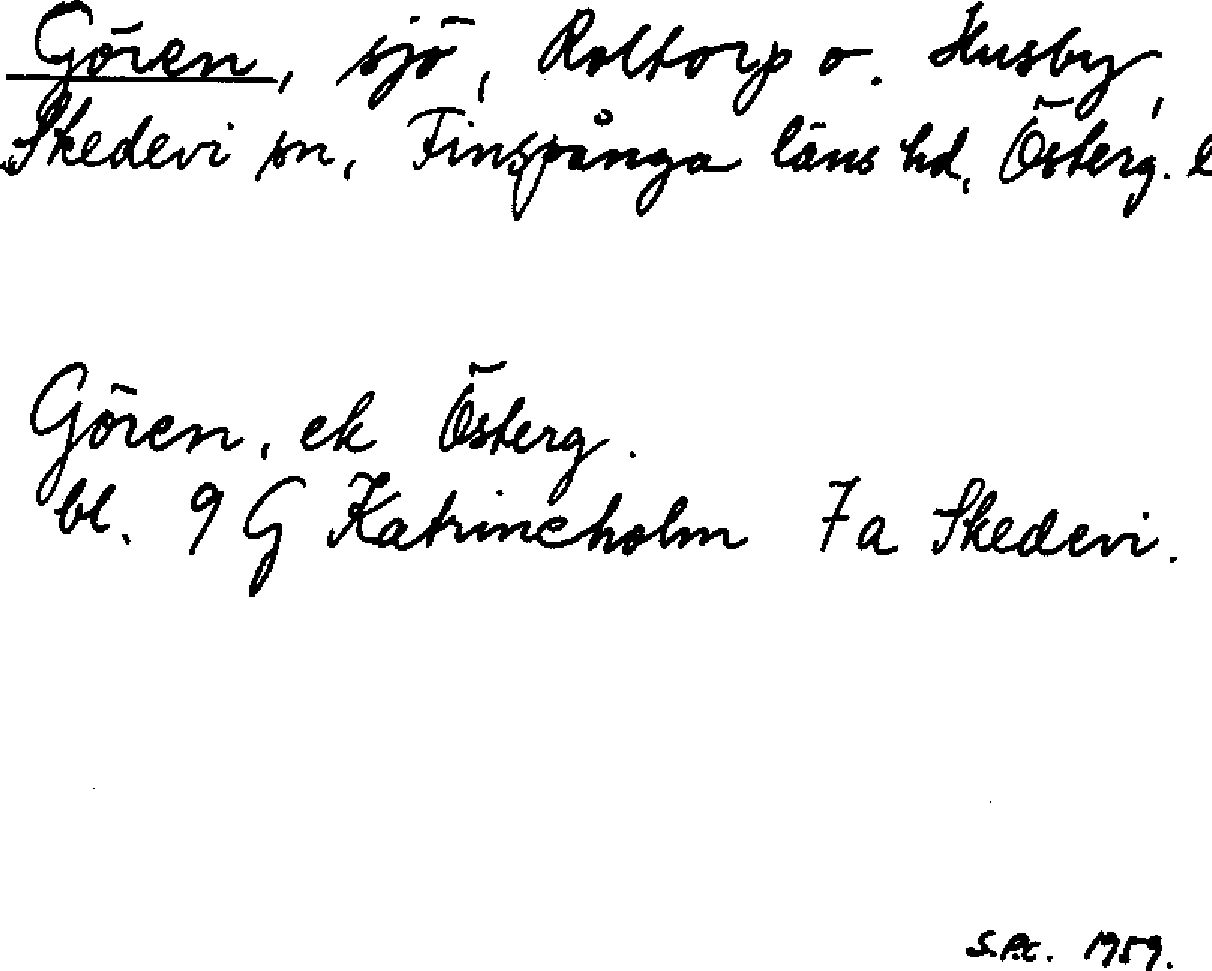 Gören, sjö, Roltorp o. Husby,
Skedevi sn, Finspånga läns hd, Österg. l
Gören, ek Österg.
bl. 9 G Katrineholm 7 a Skedevi.
1959.